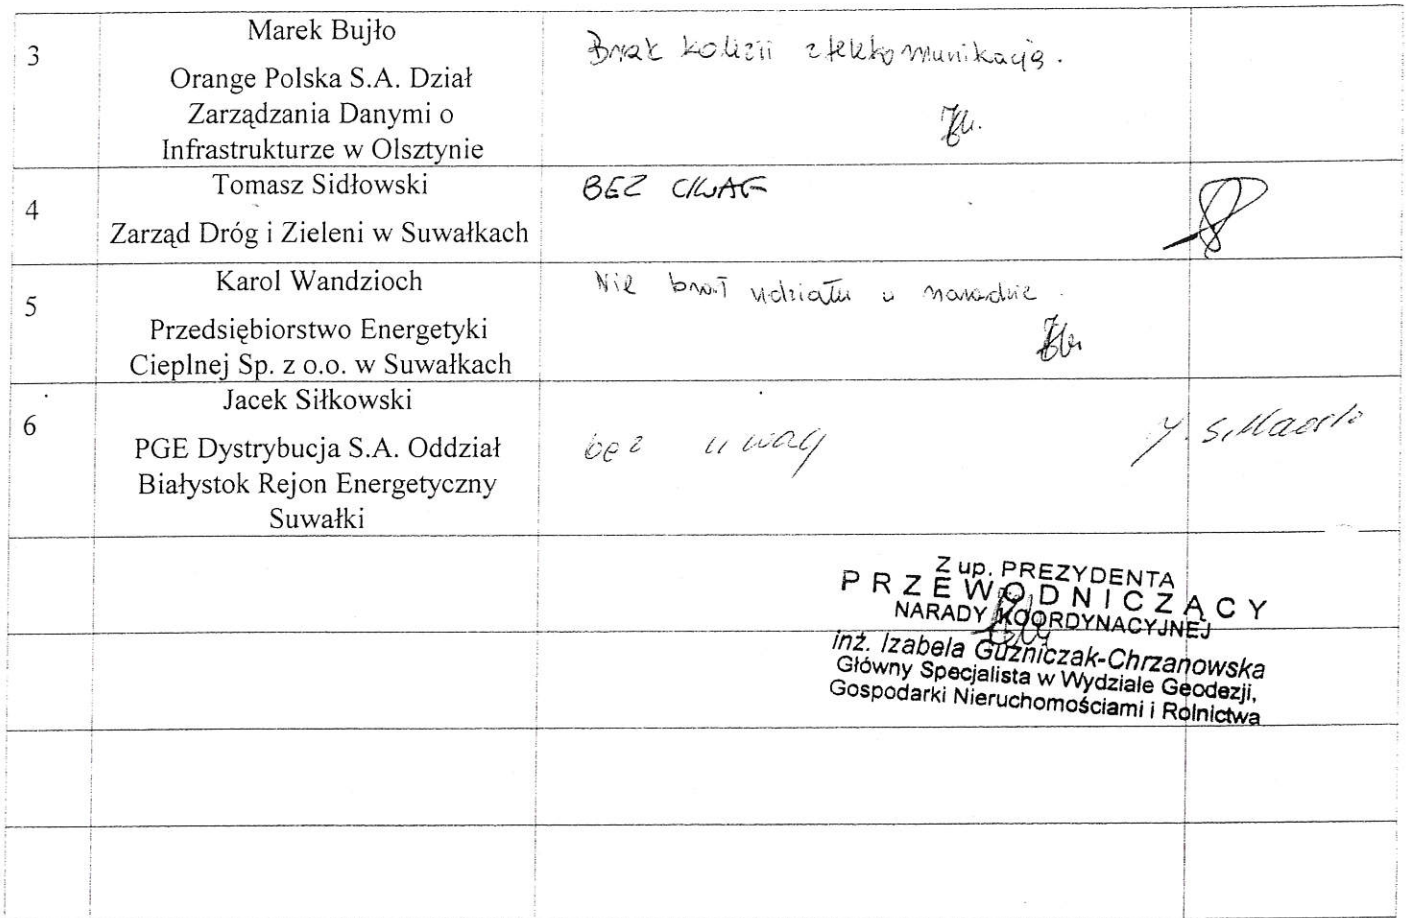 3
Marek Bujło
Orange Polska S.A. Dział
Zarządzania Danymi o
Infrastrukturze w Olsztynie
Brak kolizji z telekomunikacją.
4
Tomasz Sidłowski
Zarząd Dróg i Zieleni w Suwałkach
BEZ UWAG
5
Karol Wandzioch
Przedsiębiorstwo Energetyki
Cieplnej Sp. z o.o. w Suwałkach
Nie brał udziału w naradzie.
6
Jacek Siłkowski
PGE Dystrybucja S.A. Oddział
Białystok Rejon Energetyczny
Suwałki
bez uwag
Z up. PREZYDENTA
PRZEWODNICZĄCY
NARADY KOORDYNACYJNEJ
inż. Izabela Guźniczak-Chrzanowska
Główny Specjalista w Wydziale Geodezji,
Gospodarki Nieruchomościami i Rolnictwa